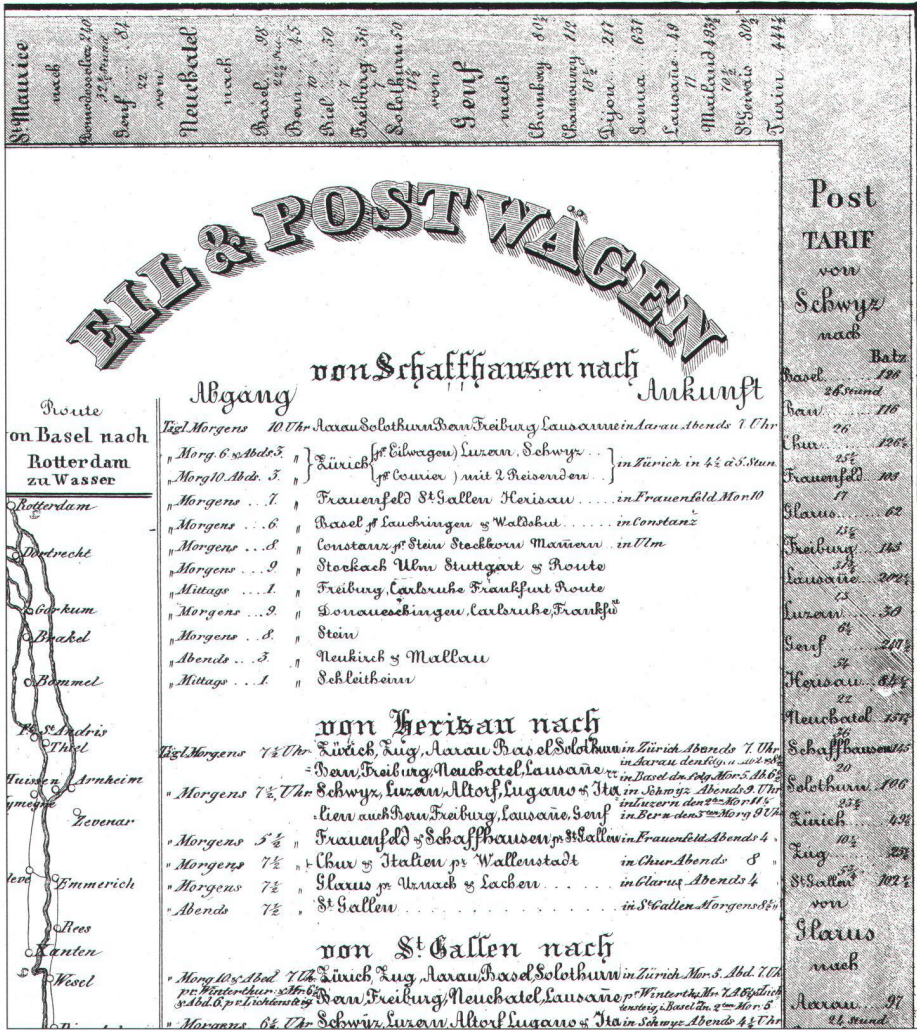 St Maurice
nach
Domodossola 240
32½ Stund
Genf ..... 84
22
von
Neuchatel
nach
Basel ... 98
22½ Stun.
Bern ... 45
10
Biel ... 30
7
Freiburg . 36
7
Solothurn 50
11½
von
Genf
nach
Chambery 80½
Chamoury 112
18½
Dijon .... 217
Genua ... 631
Lausañe .. 49
11
Mailand 493½
70½
St Gervais 80½
Turin 444½
EIL & POSTWÄGEN
von Schaffhausen nach
Abgang
Ankunft
Tägl. Morgens 10 Uhr Aarau Solothurn Bern Freiburg Lausanne in Aarau Abends 7 Uhr
„ Morg. 6 & Abds 3. „ Zürich (pr Eilwagen) Luzern, Schwyz..
„ Morg 10. Abds. 3. „ (pr Courier ) mit 2 Reisenden.. in Zürich in 4½ à 5. Stun
„ Morgens ... 7. „ Frauenfeld St Gallen Herisau ..... in Frauenfeld Mor 10
„ Morgens ... 6. „ Basel pr Lauchringen & Waldshut ...... in Constanz
„ Morgens ... 8. „ Constanz pr. Stein Steckborn Mamern .. in Ulm
„ Morgens ... 9. „ Stockach Ulm Stuttgart & Route
„ Mittags ... 1. „ Freiburg, Carlsruhe Frankfurt Route
„ Morgens ... 9. „ Donaueschingen, Carlsruhe, Frankfu
„ Morgens ... 8. „ Stein
„ Abends ... 3. „ Neukirch & Mallau
„ Mittags ... 1. „ Schleitheim
von Herisau nach
Tägl. Morgens 7½ Uhr Zürich, Zug, Aarau Basel, Solothurn in Zürich Abends 7. Uhr
in Aarau den folg.
Bern, Freiburg, Neuchatel, Lausañe in Basel dn. folg. Mor 5. Ab. 6½
„ Morgens 7½, Uhr Schwyz, Luzern, Altorf, Lugano & Ita in Schwyz Abends 9. Uhr
in Luzern den 2ten Mor 11½
lien auch Bern, Freiburg, Lausañe, Genf in Bern den 3ten Morg 9 Uhr
„ Morgens 5½ „ Frauenfeld & Schaffhausen pr St Gallen in Frauenfeld Abends 4 „
„ Morgens 7½ „ Chur & Italien pr Wallenstadt in Chur Abends 8 „
„ Morgens 7½ „ Glarus pr Uznach & Lachen ..... in Glarus Abends 4
„ Abends 7½ „ St Gallen ............ in St Gallen Morgens 8½ „
von St Gallen nach
„ Morg 10 & Abd 7 Uhr Zürich, Zug, Aarau, Basel, Solothurn in Zürich Mor 5. Abd. 7 Uh
pr. Winterthur: & Mr. 6½
& Abd. 6, pr. Lichtensteig Bern, Freiburg, Neuchatel, Lausañe pr Winterth. Mr. 7. Ab
ensteig, i. Basel dn. 2ten Mor. 5
„ Morgens 6½ Uhr Schwÿz, Luzern Altorf Lugano & Ita in Schwyz Abends 4½ Uhr
Route
on Basel nach
Rotterdam
zu Wasser
Rotterdam
Dortrecht
Gorkum
Brakel
Bommel
St Andris
Thiel
Huissen
Arnheim
ymegen
Zevenar
leve
Emmerich
Rees
Xanten
Wesel
Post
TARIF
von
Schwyz
nach
Batz
Basel .. 126
26 Stund
Bern .... 116
26
Chur .... 126½
25½
Frauenfeld 103
17
Glarus ... 62
15½
Freiburg ... 143
31½
Lausañe ... 202½
13
Luzern ... 30
6½
Genf ..... 247½
54
Herisau ... 84½
22
Neuchatel .. 151½
36
Schaffhausen 145
20
Solothurn 106
23½
Zürich .... 49½
10½
Zug ..... 25½
5½
St Gallen 102½
von
Glarus
nach
Aarau .. 97
24 Stund